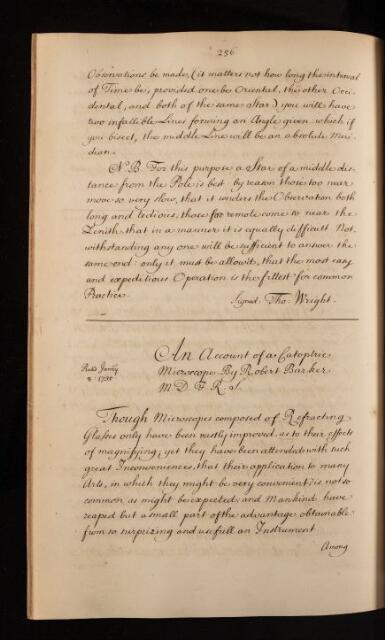 256
Observations be made, (it matters not how long the interval
of Time be, provided one be Oriental, the other Occi-
dental, and both of the same Star) you will have
two infallible Lines forming an Angle given which if
you bisect, the middle Line will be an absolute Meri-
dian.
N.B. For this purpose a Star of a middle dis-
tance from the Pole is best by reason those too near
move so very slow, that it renders the Observation both
long and tedious; those too remote come so near the
Zenith that in a manner it is equally difficult Not-
withstanding any one will be sufficient to answer the
same end: only it must be allow'd, that the most easy
and expeditious Operation is the fittest for common
Practice.
Signed: Tho: Wright.
An Account of a Catoptric
Microscope By Robert Barker
M. D. F. R. S.
1735
Though Microscopes composed of Refracting
Glasses only have been vastly improved, as to their effects
of magnifying; yet they have been attended with such
great Inconveniences, that their application to many
Arts, in which they might be very convenient, is not so
common as might be expected; and Mankind have
reaped but a small part of the advantage obtainable
from so surprizing and usefull an Instrument.
Among